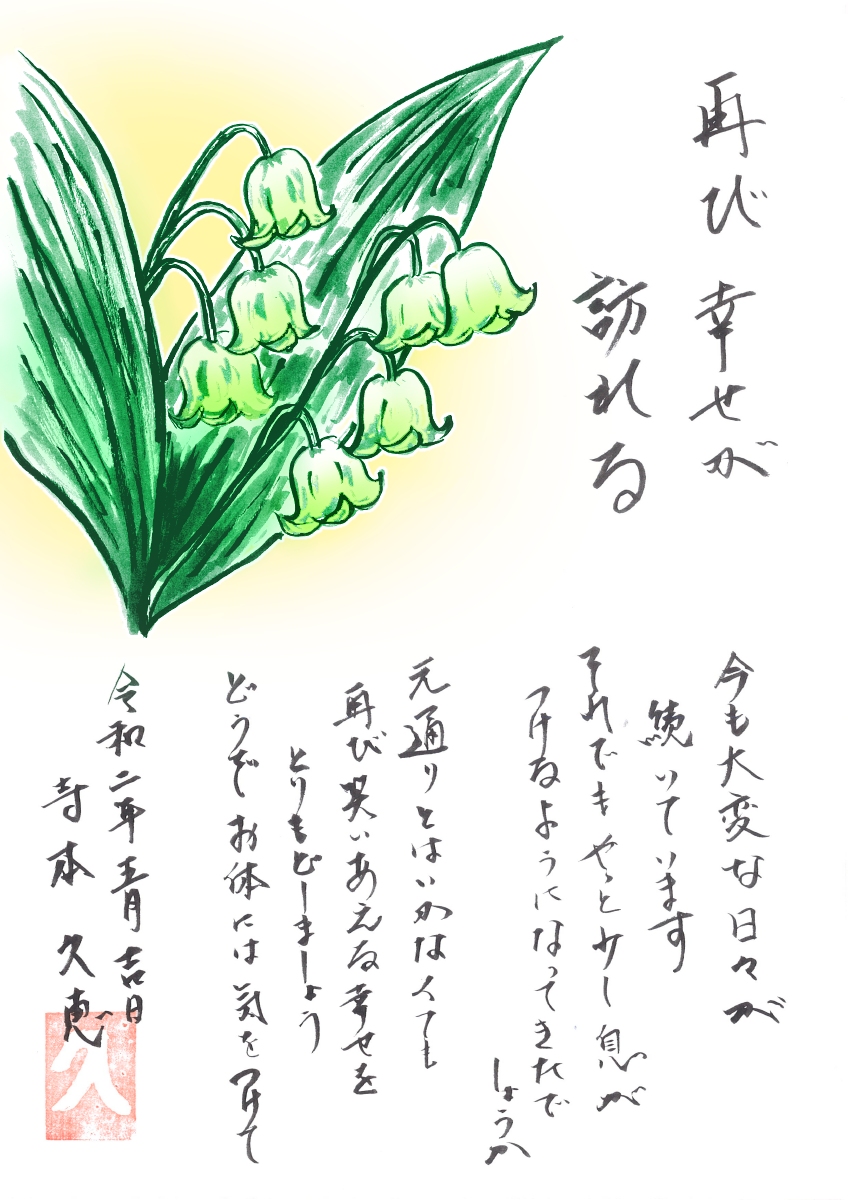 再び 幸せが
訪れる
今も大変な日々が
続いています
それでもやっと少し息が
つけるようになってきたで
しょうか
元通りとはいかなくても
再び笑いあえる幸せを
とりもどしましょう
どうぞお体には気をつけて
令和二年五月吉日
寺本 久恵
久